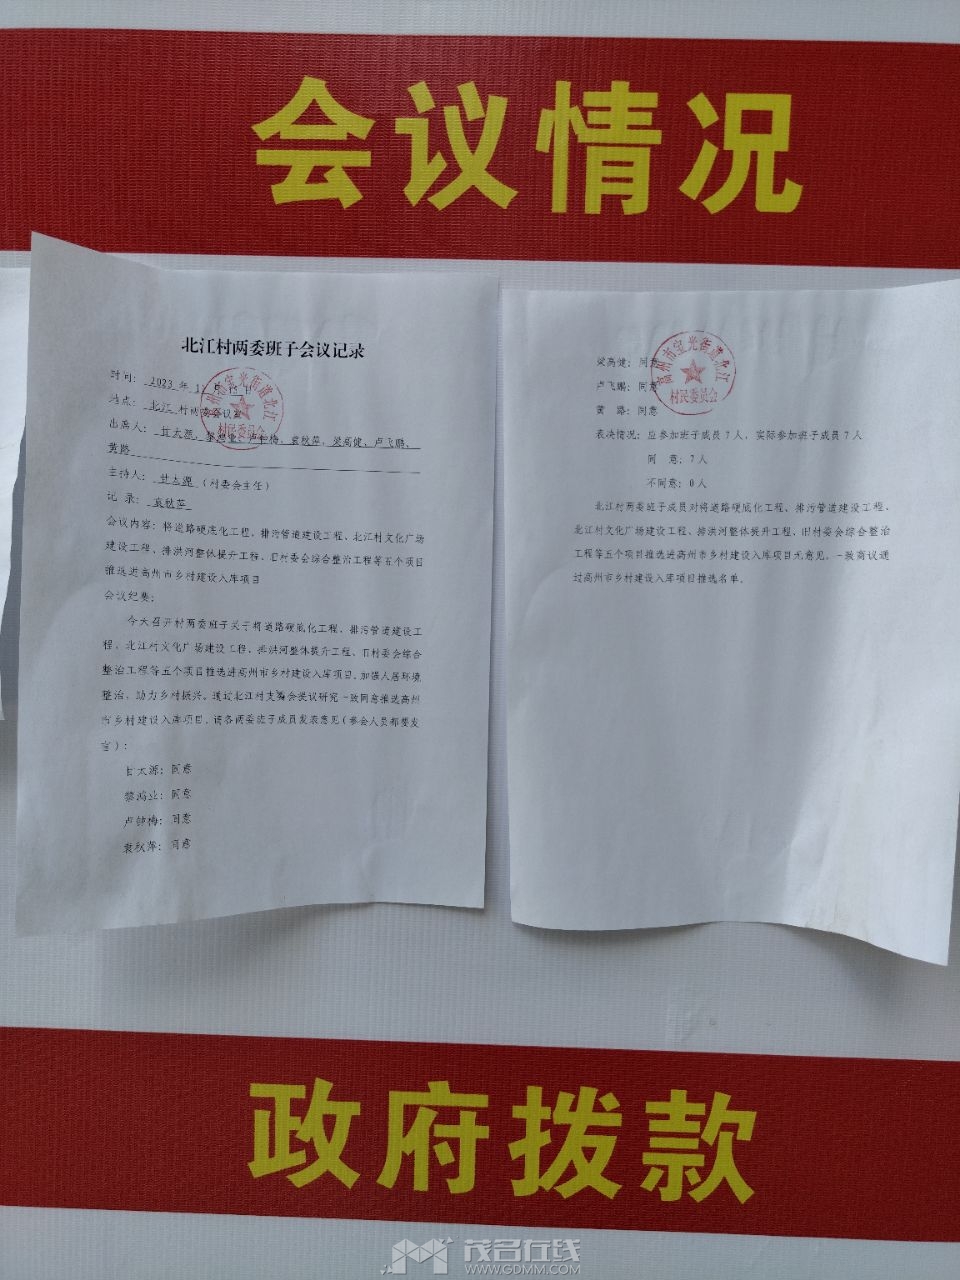 会议情况
北江村两委班子会议记录
时间：2023年11月15日
地点：北江村两委会议室
出席人：甘太源、黎鸿业、卢钟梅、袁秋萍、梁高健、卢飞鹏、
黄路
主持人：甘太源（村委会主任）
记 录：袁秋萍
会议内容：将道路硬底化工程、排污管道建设工程、北江村文化广场
建设工程、排洪河整体提升工程、旧村委会综合整治工程等五个项目
推选进高州市乡村建设入库项目
会议纪要：
今天召开村两委班子关于将道路硬底化工程、排污管道建设工
程、北江村文化广场建设工程、排洪河整体提升工程、旧村委会综合
整治工程等五个项目推选进高州市乡村建设入库项目，加强人居环境
整治，助力乡村振兴。通过北江村支委会提议研究一致同意推选高州
市乡村建设入库项目，请各两委班子成员发表意见（参会人员都要发
言）：
甘太源：同意
黎鸿业：同意
卢钟梅：同意
袁秋萍：同意
高州市宝光街道北江
村民委员会
梁高健：同意
卢飞鹏：同意
黄 路：同意
表决情况：应参加班子成员7人，实际参加班子成员7人
同 意：7人
不同意：0人
北江村两委班子成员对将道路硬底化工程、排污管道建设工程、
北江村文化广场建设工程、排洪河整体提升工程、旧村委会综合整治
工程等五个项目推选进高州市乡村建设入库项目无意见，一致商议通
过高州市乡村建设入库项目推选名单。
高州市宝光街道北江
村民委员会
政府拨款
茂名在线
WWW.GDMM.COM